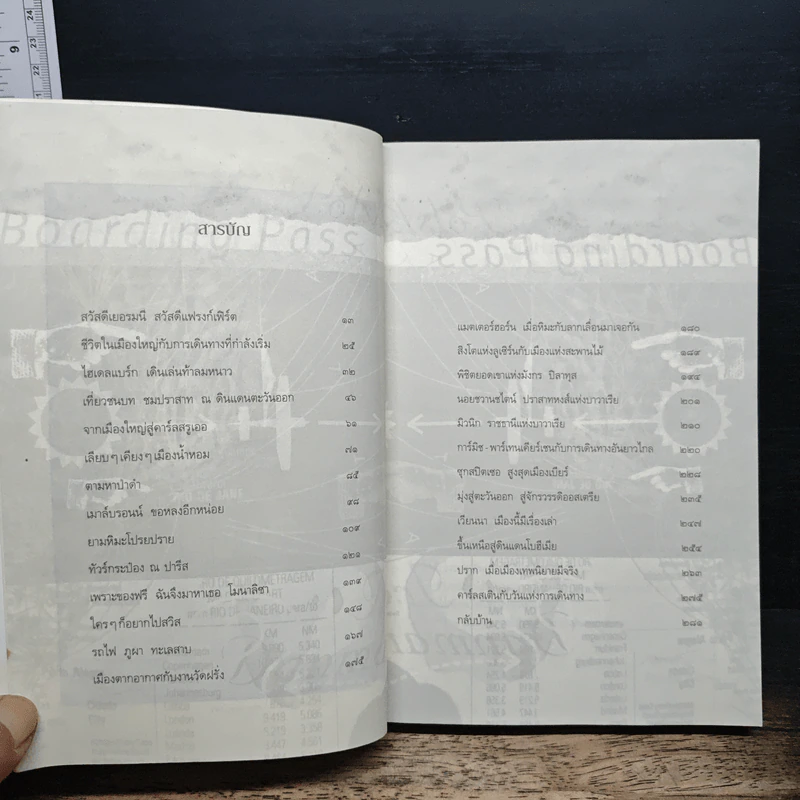 9
24
23
22
21
Boarding Pass
สารบัญ
สวัสดีเยอรมนี สวัสดีแฟรงก์เฟิร์ต ๑๓
ชีวิตในเมืองใหญ่กับการเดินทางที่กำลังเริ่ม ๒๕
ไฮเดลแบร์ก เดินเล่นท้าลมหนาว ๓๒
เที่ยวชนบท ชมปราสาท ณ ดินแดนตะวันออก ๔๖
จากเมืองใหญ่สู่คาร์ลสรูเออ ๖๑
เลียบๆ เคียงๆ เมืองน้ำหอม ๗๑
ตามหาป่าดำ ๘๕
เมาล์บรอนน์ ขอหลงอีกหน่อย ๙๘
ยามหิมะโปรยปราย ๑๐๙
ทัวร์กระป๋อง ณ ปารีส ๑๒๑
เพราะของฟรี ฉันจึงมาหาเธอ โมนาลิซา ๑๓๙
ใครๆ ก็อยากไปสวิส ๑๔๘
รถไฟ ภูผา ทะเลสาบ ๑๖๗
เมืองตากอากาศกับงานวัดฝรั่ง ๑๗๕
แมตเตอร์ฮอร์น เมื่อหิมะกับลากเลื่อนมาเจอกัน ๑๘๐
สิงโตแห่งลูเซิร์นกับเมืองแห่งสะพานไม้ ๑๘๙
พิชิตยอดเขาแห่งมังกร ปิลาทุส ๑๙๔
นอยชวานชไตน์ ปราสาทหงส์แห่งบาวาเรีย ๒๐๑
มิวนิก ราชธานีแห่งบาวาเรีย ๒๑๐
การ์มิช-พาร์เทนเคียร์เชนกับการเดินทางอันยาวไกล ๒๒๐
ซุกสปิตเซอ สูงสุดเมืองเบียร์ ๒๒๘
มุ่งสู่ตะวันออก สู่จักรวรรดิออสเตรีย ๒๓๕
เวียนนา เมืองนี้มีเรื่องเล่า ๒๔๗
ขึ้นเหนือสู่ดินแดนโบฮีเมีย ๒๕๔
ปราก เมื่อเมืองเทพนิยายมีจริง ๒๖๓
คาร์ลสเตินกับวันแห่งการเดินทาง ๒๗๕
กลับบ้าน ๒๘๑